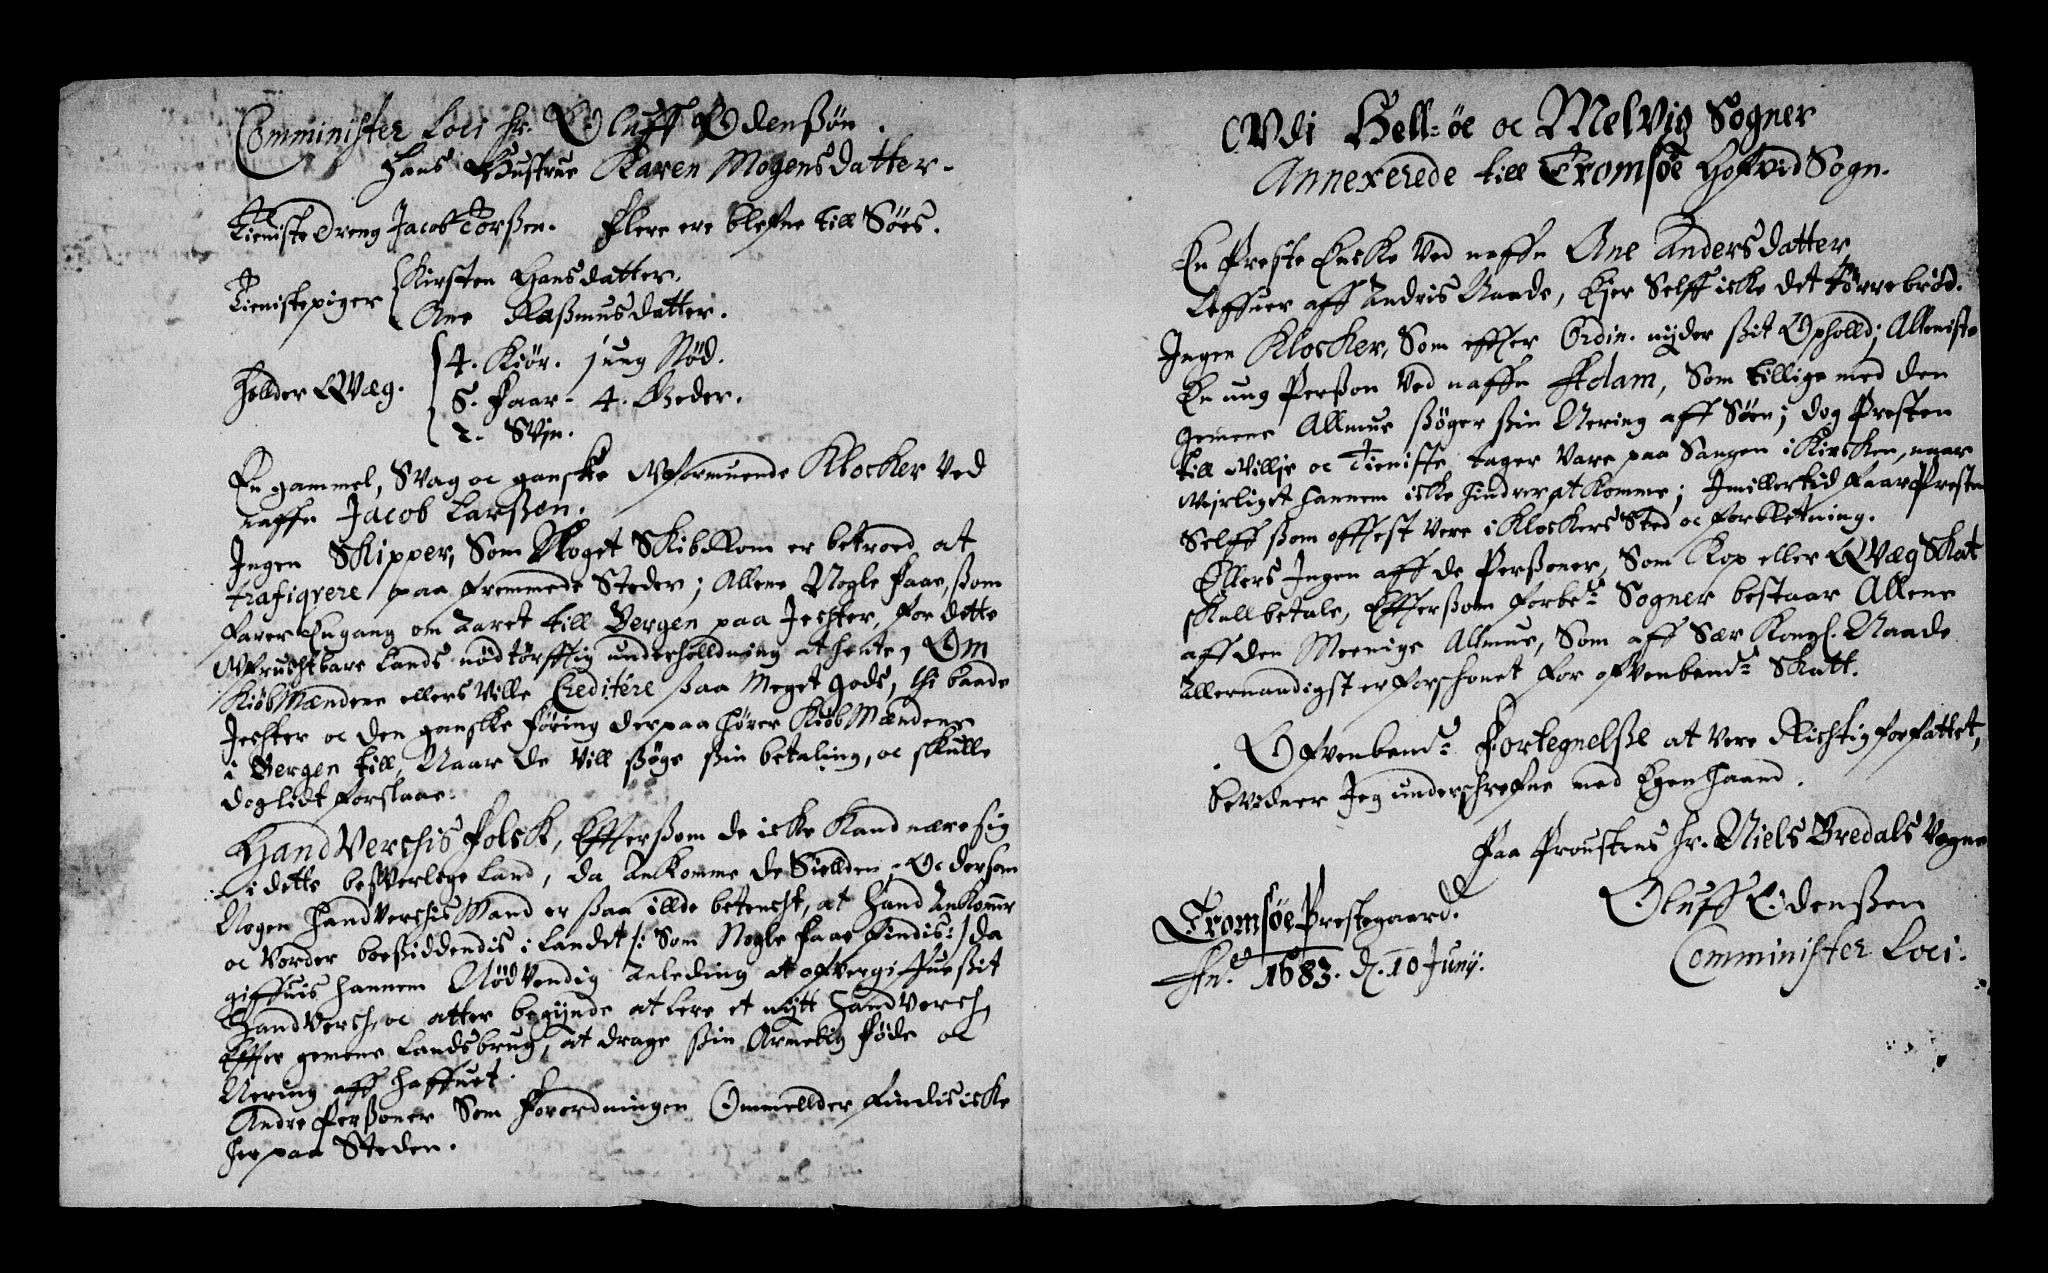 Comminister Loci Hr. Oluff Odensøn.
Hans Hustrue Karen Mogensdatter.
Tieniste Dreng Jacob Torßen. Flere ere blefne till Søes.
Tienistepiger
Kirsten Hansdatter.
Ane Raßmusdatter.
Hollder QVæg.
4. Kiør. jung Nød.
5. Faar. 4. Geder.
2. Svin.
En gammel, Svag oc ganske Vformuende Klocker Ved
naffn Jacob Larßen.
Ingen Skipper, Som Noget SkibsRom er betroed at
trafiqvere paa fremmede Steder; Allene Nogle Faae, ßom
farer Engang om Aaret till Bergen paa Jechter, for dette
Vfruchtbare Lands nødtørfftig underholldning at hente, Om
KiøbMændene ellers Ville Creditére ßaa Meget gods, thi baade
Jechter oc den ganske føring derpaa hører KiøbMændene
i Bergen till, Naar de Vill ßøge ßin betaling, oc skulle
dog lidt forslaae.
HandVerchis Folck, Effterßom de icke Kand nære sig
i dette beßVerlige Land, da Ankomme de Siellden; Oc dersom
Nogen HandVerchis Mand er ßaa illde betencht, at Hand Ankommer
oc Vorder boesiddendis i Landet /: Som Nogle Faae findis :/ da
giffuis hannem NødVendig Anleding at ofvergiffue ßit
HandVerch, oc atter begynde at lere et nytt HandVerch,
Effter gemene Landsbrug, at drage ßin Armelig Føde oc
Nering aff Haffuet.
Andre Perßoner Som Forordningen Ommellder findis icke
her paa Steden.
Vdi Hell-øe oc Melvig Sogner
Annexerede till Tromsøe HofvidSogn.
En Preste Encke Ved naffn Ane Andersdatter,
Leffuer aff Andris Naade, Ejer Selff icke det tørrebrød.
Ingen Klocker, Som effter Ordin. nyder ßit Ophold; Alleniste
En ung Perßon Ved naffn Adam, Som tillige med den
Gemene Allmue ßøger ßin Nering aff Søen; dog Presten
till Villje oc Tieniste, tager Vare paa Sangen i Kircken, naar
Vejrliget hannem icke hindrer at komme; Imillertid faar Presten
Selff ßom offtest Vere i Klockers Sted oc forretning.
Ellers Ingen aff de Perßoner, Som Kop eller QVæg Skat
skull betale, Effterßom forbete Sogner bestaar Allene
aff den Meenige Allmue, Som aff Sær Kongl. Naade
Allernaadigst er forschonet for ofvenbemte Skatt.
Ofvenbemte Fortegnelße at Vere Richtig forfattet,
bevidner Jeg underschrefne med Egen Haand.
Paa Proustens Hr. Niels Bredals Vegne
Oluff Odenßen
Comminister Loci.
Tromsøe Prestegaard.
An. 1683. d. 10 Junij.